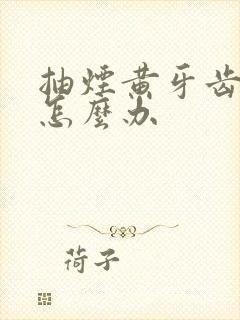 抽煙黄牙齿
怎麼办
荷子